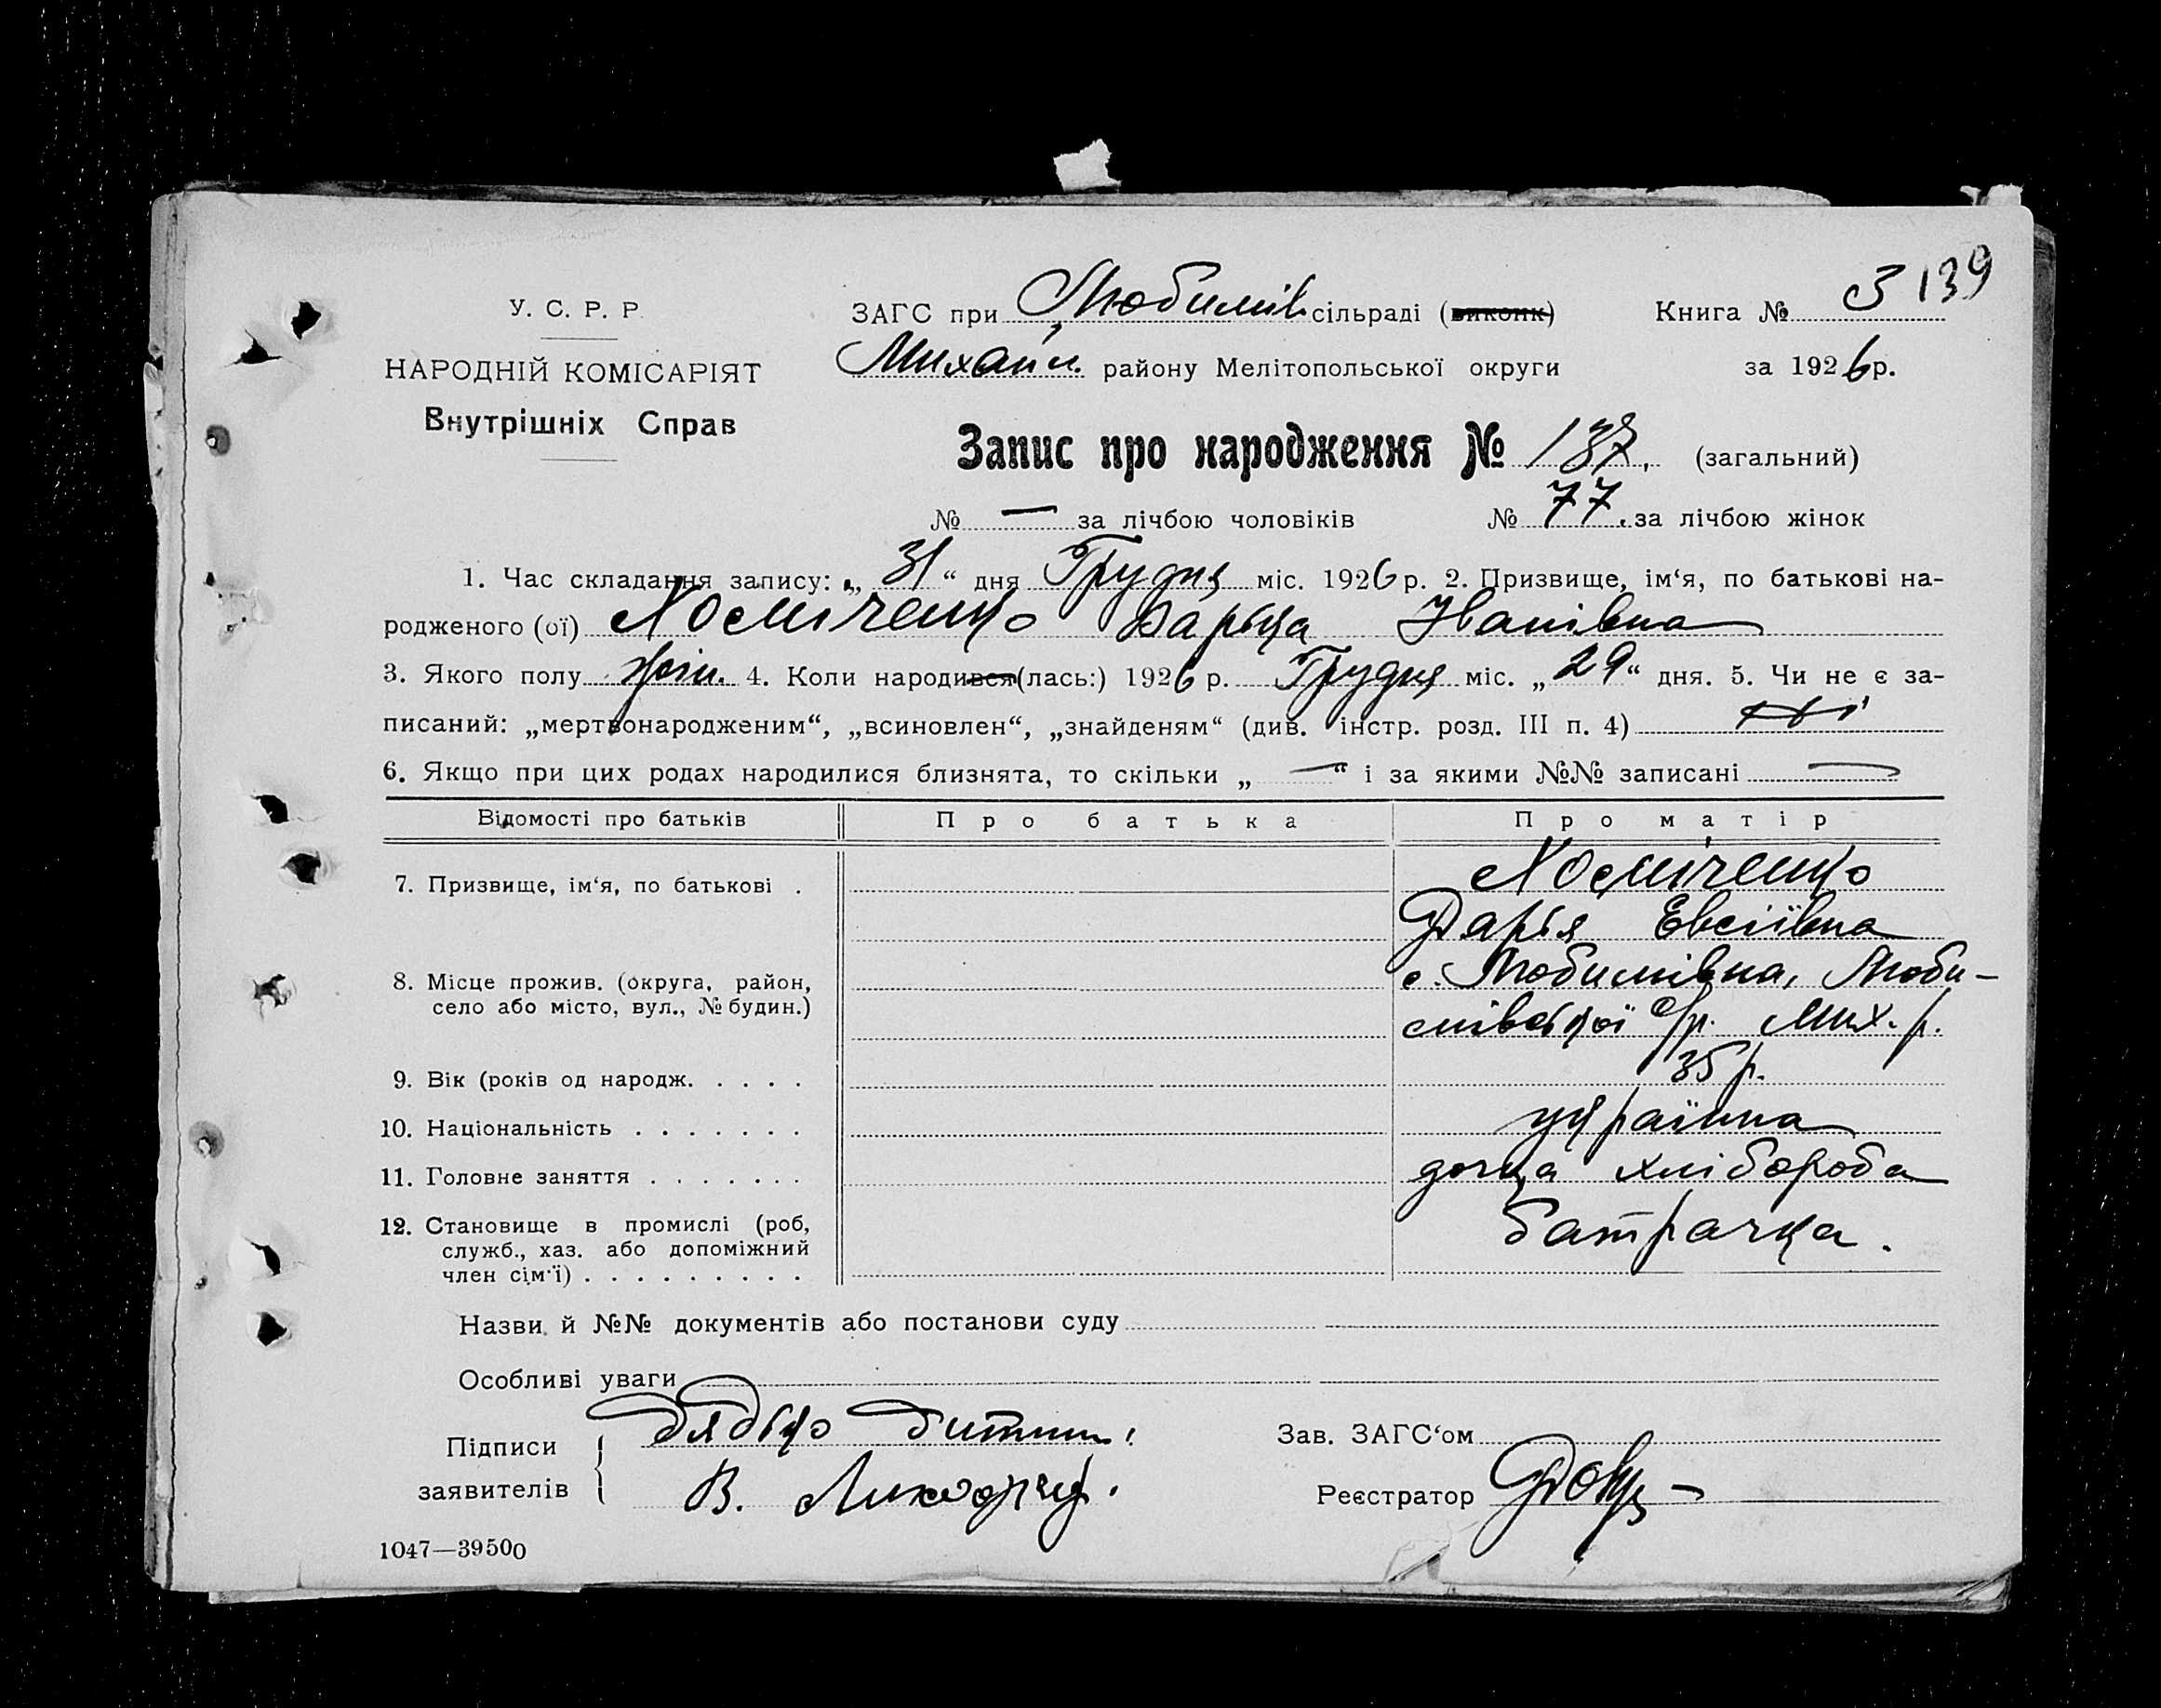 У. С. Р. Р.
НАРОДНІЙ КОМІСАРІЯТ
Внутрішніх Справ
ЗАГС при Любимів. сільраді (виконк) Книга № 3 139
Михайл. району Мелітопольської округи за 1926 р.
Запис про народження № 137. (загальний)
№ — за лічбою чоловіків № 77. за лічбою жінок
1. Час складання запису: „31“ дня Грудня міс. 1926 р. 2. Призвище, ім‘я, по батькові на-
родженого (ої) Хоміченко Варька Іванівна
3. Якого полу жін. 4. Коли народився (лась:) 1926 р. Грудня міс. „29“ дня. 5. Чи не є за-
писаний: „мертвонародженим“, „всиновлен“, „знайденям“ (див. інстр. розд. III п. 4) Ні
6. Якщо при цих родах народилися близнята, то скільки „—“ і за якими №№ записані —
Відомості про батьків Про батька Про матір
7. Призвище, ім‘я, по батькові . Хоміченко
Дарья Евсіївна
8. Місце прожив. (округа, район, с. Любимівка, Люби-
село або місто, вул., № будин.) мівської с/р. Мих. р.
9. Вік (років од народж. . . . . 35 р.
10. Національність . . . . . . . українка
11. Головне заняття . . . . . . . дочка хлібороба
12. Становище в промислі (роб, батрачка.
служб., хаз. або допоміжний
член сім‘ї) . . . . . . . . .
Назви й №№ документів або постанови суду
Особливі уваги
Підписи дядько дитини: Зав. ЗАГС‘ом
заявителів В. Реєстратор
1047—39500